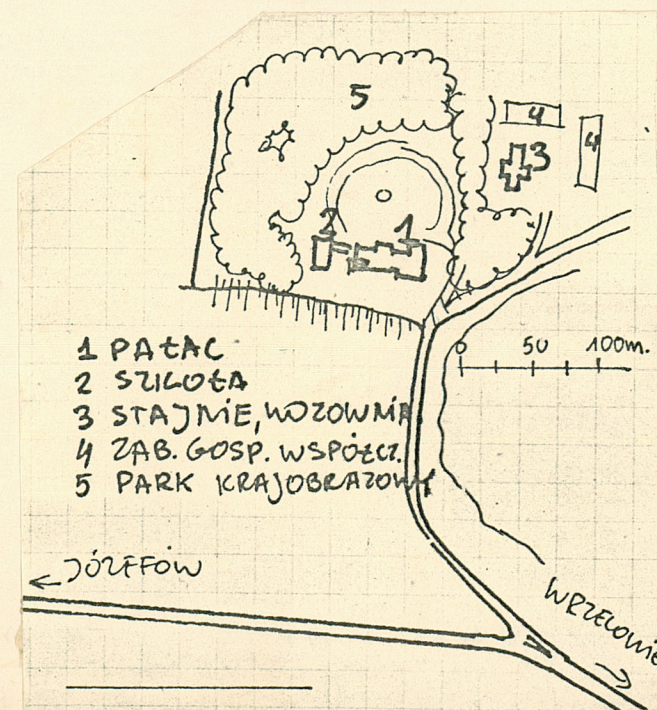 5
4
4
3
2
1
0 50 100m.
1 PAŁAC
2 SZKOŁA
3 STAJNIE, WOZOWNIA
4 ZAB. GOSP. WSPÓŁCZ.
5 PARK KRAJOBRAZOWY
← JÓZEFÓW
WRZELOWIE